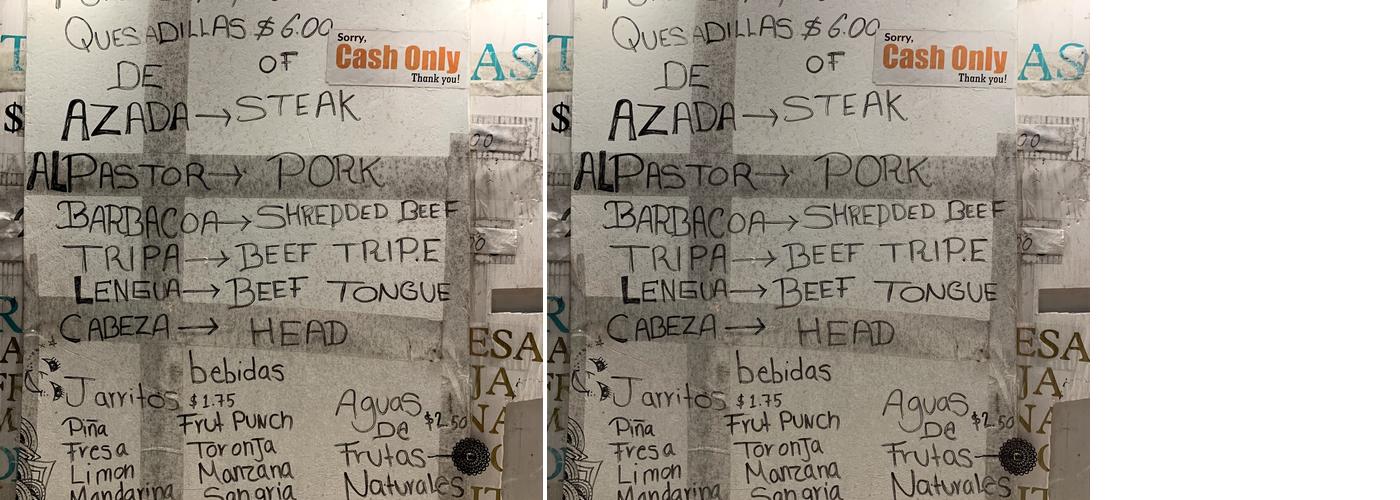 QUESADILLAS $6.00
Sorry,
Cash Only
Thank you!
DE OF
AZADA→STEAK
ALPASTOR→PORK
BARBACOA→SHREDDED BEEF
TRIPA→BEEF TRIPE
LENGUA→BEEF TONGUE
CABEZA→HEAD
bebidas
Jarritos $1.75
Piña
Fresa
Limon
Mandarina
Frut PUNCH
ToronJa
Manzana
Sangria
Aguas $2.50
De
Frutas
Naturales
AS
$
ESA
JA
QUESADILLAS $6.00
Sorry,
Cash Only
Thank you!
DE OF
AZADA→STEAK
ALPASTOR→PORK
BARBACOA→SHREDDED BEEF
TRIPA→BEEF TRIPE
LENGUA→BEEF TONGUE
CABEZA→HEAD
bebidas
Jarritos $1.75
Piña
Fresa
Limon
Mandarina
Frut PUNCH
ToronJa
Manzana
Sangria
Aguas $2.50
De
Frutas
Naturales
AS
$
ESA
JA